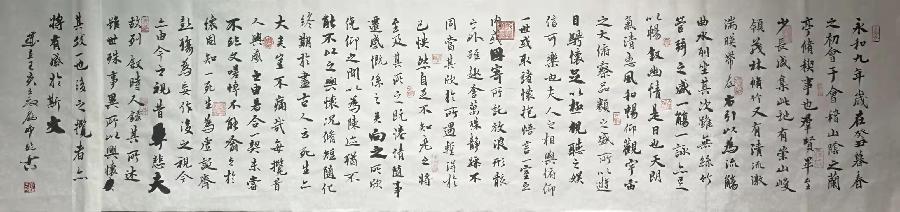 永和九年歲在癸丑暮春
之初會于會稽山陰之蘭
亭脩禊事也羣賢畢至
少長咸集此地有崇山峻
領茂林脩竹又有清流激
湍暎帶左右引以為流觴
曲水列坐其次雖無絲竹
管弦之盛一觴一詠亦足
以暢敘幽情是日也天朗
氣清惠風和暢仰觀宇宙
之大俯察品類之盛所以遊
目騁懷足以極視聽之娛
信可樂也夫人之相與俯仰
一世或取諸懷抱悟言一室之
內或因寄所託放浪形骸
之外雖趣舍萬殊靜躁不
同當其欣於所遇暫得於
己怏然自足不知老之將
至及其所之既惓情隨事
遷感慨係之矣向之所欣
俛仰之間以為陳迹猶不
能不以之興懷況脩短隨化
終期於盡古人云死生亦
大矣豈不痛哉每攬昔
人興感之由若合一契未嘗
不臨文嗟悼不能喻之於
懷固知一死生為虛誕齊
彭殤為妄作後之視今
亦由今之視昔悲夫
故列敘時人錄其所述
雖世殊事異所以興懷
其致一也後之攬者亦
將有感於斯文